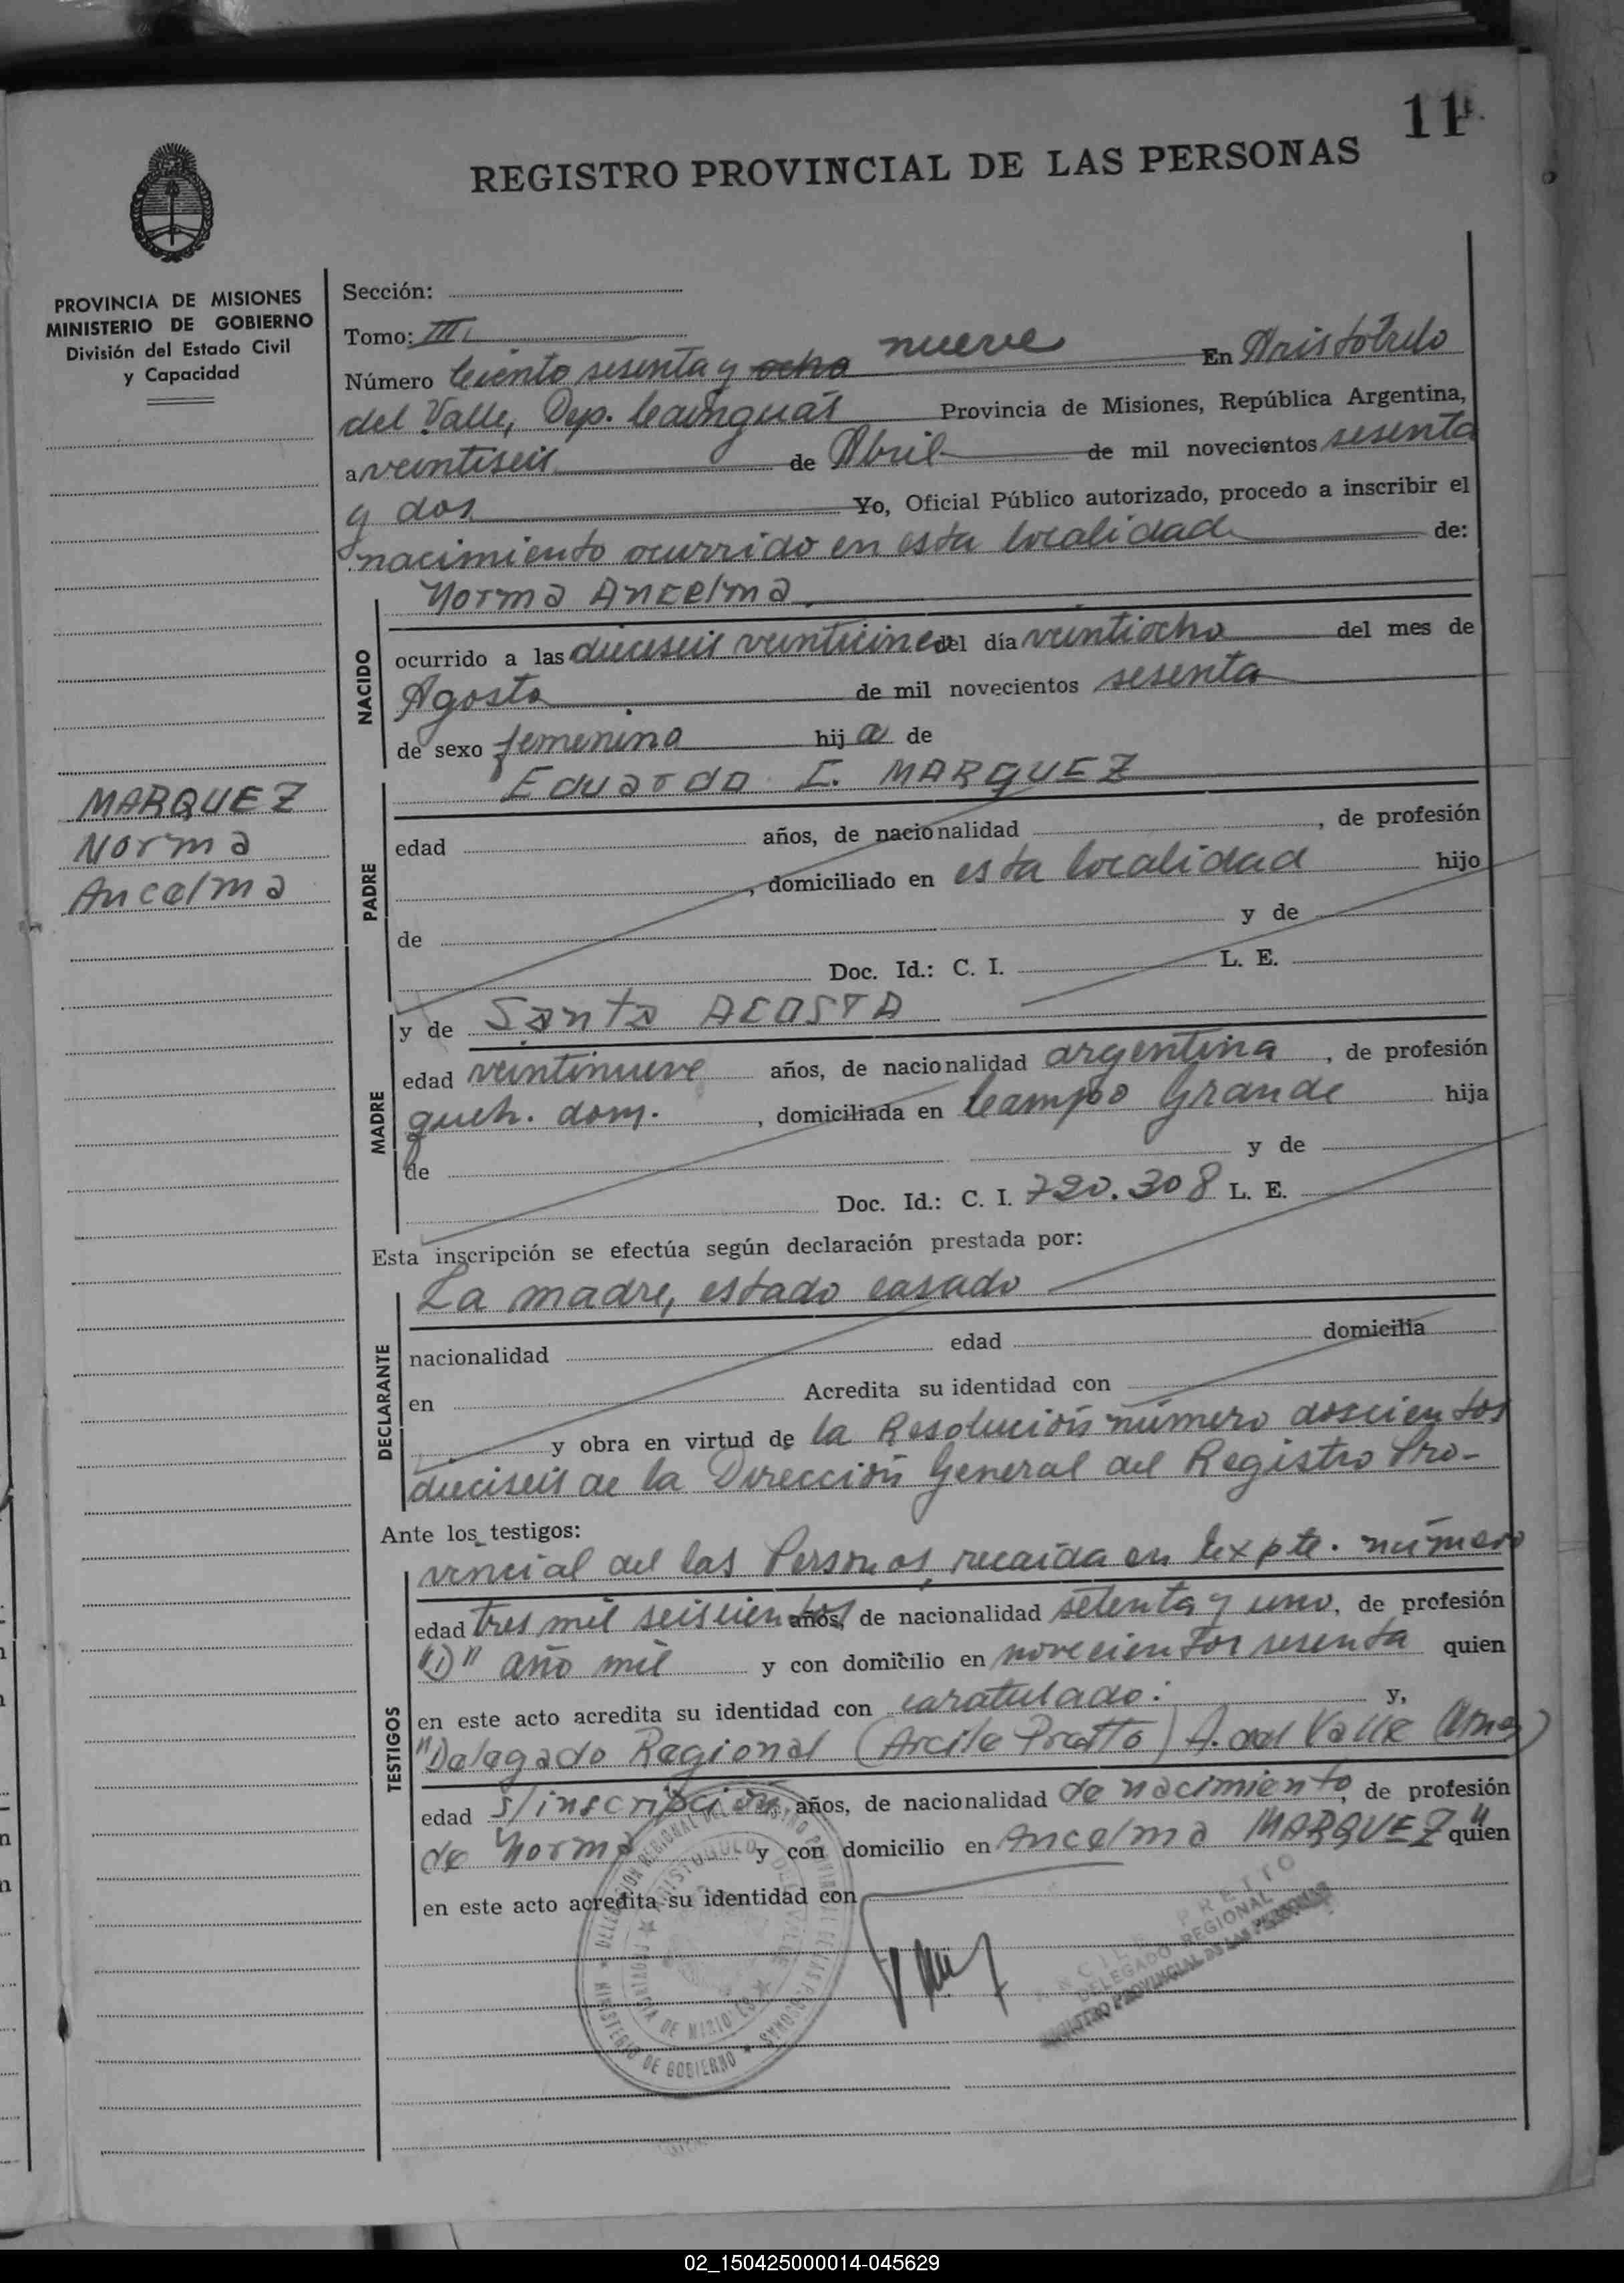 11
REGISTRO PROVINCIAL DE LAS PERSONAS
PROVINCIA DE MISIONES
MINISTERIO DE GOBIERNO
División del Estado Civil
y Capacidad
MARQUEZ
Norma
Ancelma
Sección:
Tomo: III
Número Ciento sesenta y ocho nueve En Aristóbulo
del Valle, Dep. Cainguás Provincia de Misiones, República Argentina,
a veintiseis de Abril de mil novecientos sesenta
y dos Yo, Oficial Público autorizado, procedo a inscribir el
nacimiento ocurrido en esta localidad de:
NACIDO
Norma Ancelma
ocurrido a las dieciseis veinticinco del día veintiocho del mes de
Agosto de mil novecientos sesenta
de sexo femenino hij a de
PADRE
Eduardo C. MARQUEZ
edad años, de nacionalidad , de profesión
, domiciliado en esta localidad hijo
de y de
Doc. Id.: C. I. L. E.
MADRE
y de Santa ACOSTA
edad veintinueve años, de nacionalidad argentina , de profesión
queh. dom. , domiciliada en Campo Grande hija
de y de
Doc. Id.: C. I. 720.308 L. E.
Esta inscripción se efectúa según declaración prestada por:
DECLARANTE
La madre, estado casado
nacionalidad edad domicilia
en Acredita su identidad con
y obra en virtud de la Resolución número doscientos
dieciseis de la Dirección General del Registro Pro-
Ante los testigos:
TESTIGOS
vincial del las Personas, recaída en Expte. número
edad tres mil seiscientos años, de nacionalidad setenta y uno, de profesión
"D" año mil y con domicilio en novecientos sesenta quien
en este acto acredita su identidad con caratulado: y,
"Delegado Regional (Arcile Pretto) A. del Valle (Mnes)
edad s/inscripción años, de nacionalidad de nacimiento, de profesión
de Norma y con domicilio en Ancelma MARQUEZ" quien
en este acto acredita su identidad con
DELEGACION REGIONAL DEL REGISTRO PROVINCIAL DE LAS PERSONAS
MINISTERIO DE GOBIERNO
ARISTOBULO DEL VALLE
PROVINCIA DE MISIONES
PRETTO
DELEGADO REGIONAL
REGISTRO PROVINCIAL DE LAS PERSONAS
02_150425000014-045629